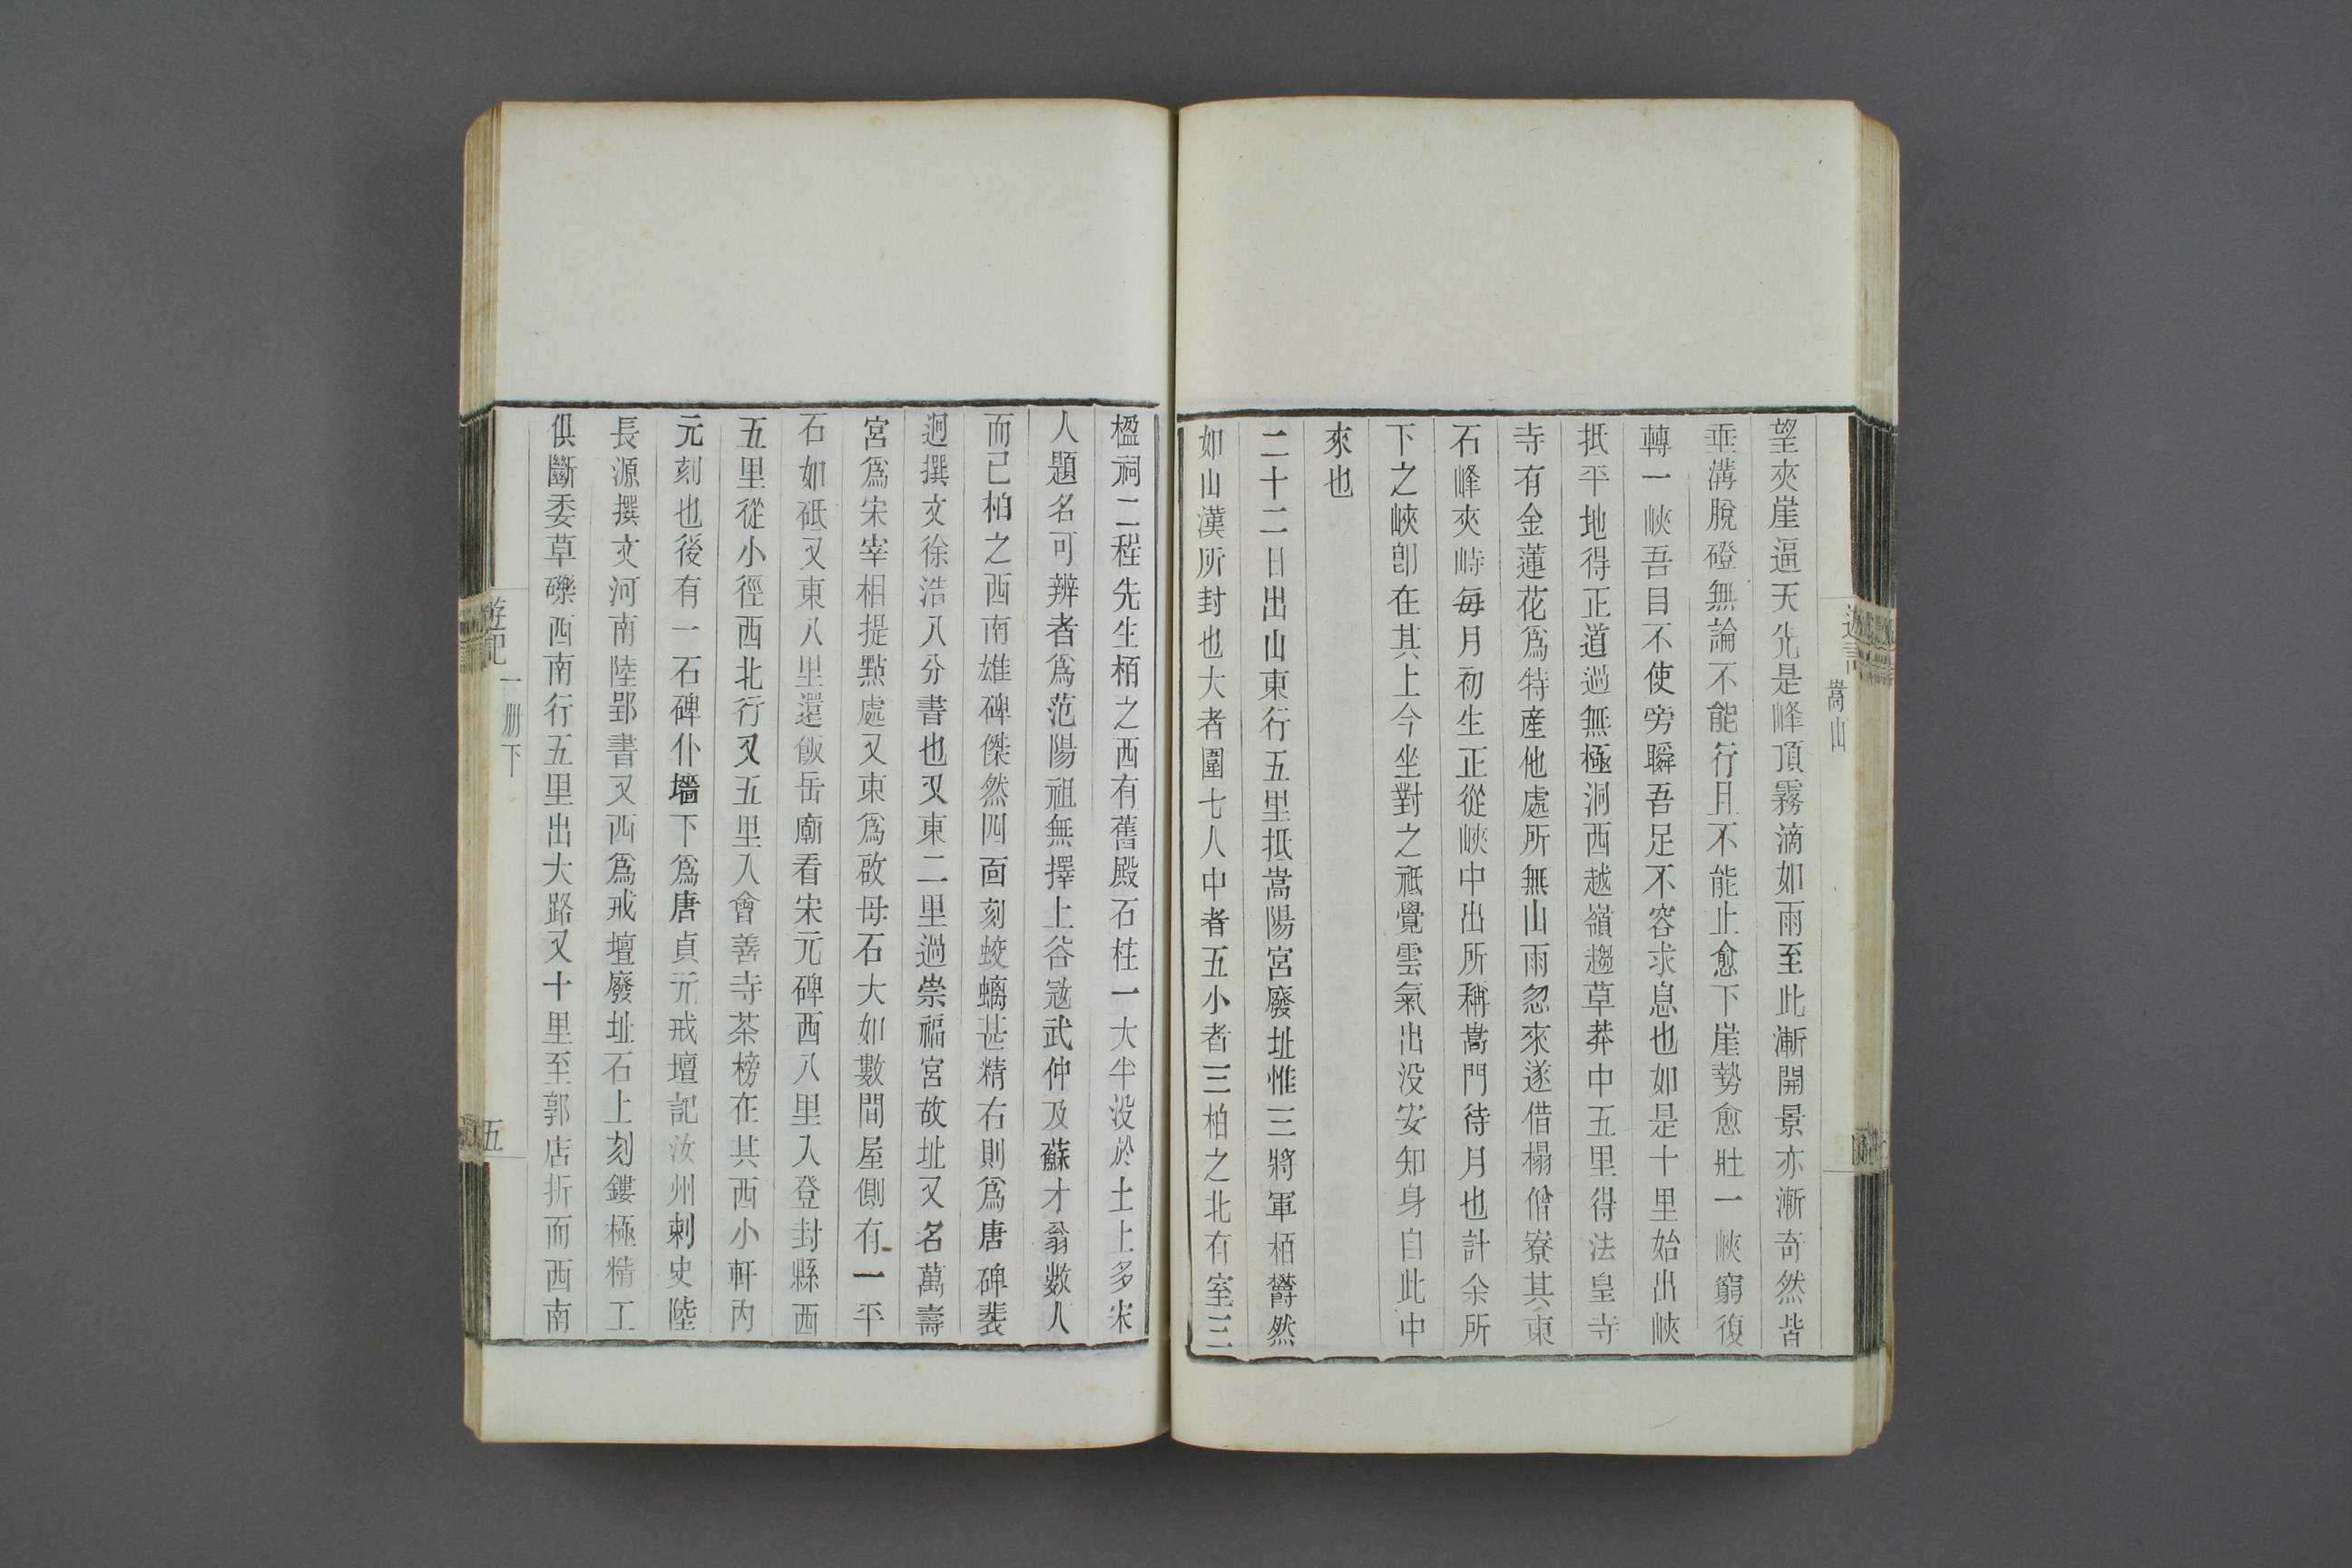 嵩山
望夾崖逼天先是峰頂霧滴如雨至此漸開景亦漸奇然皆
垂溝脫磴無論不能行且不能止愈下崖勢愈壯一峽窮復
轉一峽吾目不使旁瞬吾足不容求息也如是十里始出峽
抵平地得正道過無極洞西越嶺趨草莽中五里得法皇寺
寺有金蓮花爲特産他處所無山雨忽來遂借榻僧寮其東
石峰夾峙每月初生正從峽中出所稱嵩門待月也計余所
下之峽卽在其上今坐對之祗覺雲氣出没安知身自此中
來也
二十二日出山東行五里抵嵩陽宮廢址惟三將軍栢欝然
如山漢所封也大者圍七人中者五小者三柏之北有室三
楹祠二程先生栢之西有舊殿石柱一大半没於土上多宋
人題名可辨者爲范陽祖無擇上谷寇武仲及蘇才翁數人
而已柏之西南雄碑傑然四面刻蛟螭甚精右則爲唐碑裴
迥撰文徐浩八分書也又東二里過崇福宮故址又名萬壽
宮爲宋宰相提點處又東爲啟母石大如數間屋側有一平
石如砥又東八里還飯岳廟看宋元碑西八里入登封縣西
五里從小徑西北行又五里入會善寺茶榜在其西小軒內
元刻也後有一石碑仆墻下爲唐貞元戒壇記汝州刺史陸
長源撰文河南陸郢書又西爲戒壇廢址石上刻鏤極精工
俱斷委草礫西南行五里出大路又十里至郭店折而西南
遊記
一册下
五